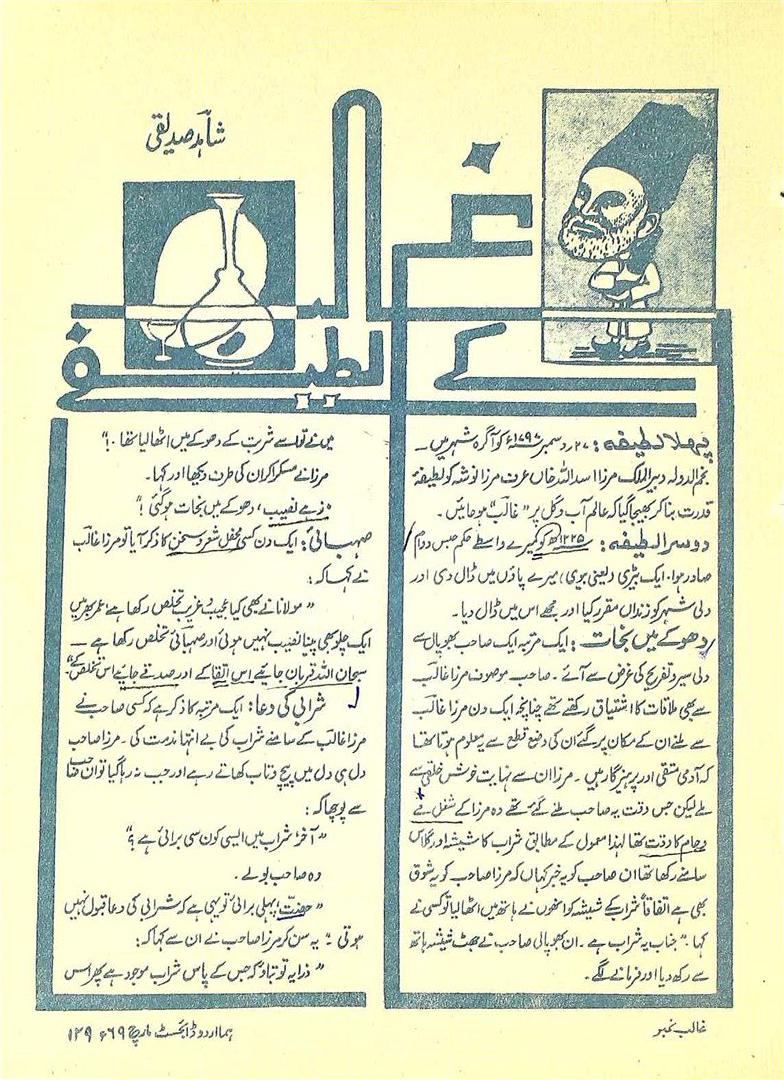 غالب
کے لطیفے
شاہد صدیقی
پہلا لطیفہ: ۲۷ر دسمبر ۱۷۹۷ء کو آگرہ شہر میں۔
نجم الدولہ دبیر الملک مرزا اسد اللہ خاں عرف مرزا نوشہ کو لطیفۂ
قدرت بنا کر بھیجا گیا کہ عالم آب و گل پر "غالب" ہو جائیں۔
دوسرا لطیفہ: ۱۲۲۵ھ کو میرے واسطے حکم حبس دوام
صادر ہوا۔ ایک بیڑی (یعنی بیوی) میرے پاؤں میں ڈال دی اور
دلی شہر کو زنداں مقرر کیا اور مجھے اس میں ڈال دیا۔
دھوکے میں نجات: ایک مرتبہ ایک صاحب بھوپال سے
دلی سیر و تفریح کی غرض سے آئے۔ صاحب موصوف مرزا غالب
سے بھی ملاقات کا اشتیاق رکھتے تھے چنانچہ ایک دن مرزا غالب
سے ملنے ان کے مکان پر گئے ان کی وضع قطع سے یہ معلوم ہوتا تھا
کہ آدمی متقی اور پرہیزگار ہیں۔ مرزا ان سے نہایت خوش خلقی سے
ملے لیکن جس وقت یہ صاحب ملنے گئے تھے وہ مرزا کے شغل مے
و جام کا وقت تھا لہٰذا معمول کے مطابق شراب کا شیشہ اور گلاس
سامنے رکھا تھا ان صاحب کو یہ خبر کہاں کہ مرزا صاحب کو یہ شوق
بھی ہے اتفاقاً شراب کے شیشہ کو انھوں نے ہاتھ میں اٹھا لیا تو کسی نے
کہا۔ "جناب یہ شراب ہے۔ ان بھوپالی صاحب نے جھٹ شیشہ ہاتھ
سے رکھ دیا اور فرمانے لگے۔
میں نے تو اسے شربت کے دھوکے میں اٹھا لیا تھا۔!"
مرزا نے مسکرا کر ان کی طرف دیکھا اور کہا۔
"زہے نصیب، دھوکے میں نجات ہو گئی!"
صہبائی: ایک دن کسی محفل شعر و سخن کا ذکر آیا تو مرزا غالب
نے کہا کہ:
"مولانا نے بھی کیا عجیب و غریب تخلص رکھا ہے، عمر بھر میں
ایک چلو بھی پینا نصیب نہیں ہوئی اور صہبائی تخلص رکھا ہے۔
سبحان اللہ قربان جائیے اس اتقا کے اور صدقے جائیے اس تخلص کے۔"
شرابی کی دعا: ایک مرتبہ کا ذکر ہے کہ کسی صاحب نے
مرزا غالب کے سامنے شراب کی بے انتہا مذمت کی۔ مرزا صاحب
دل ہی دل میں پیچ و تاب کھاتے رہے اور جب نہ رہا گیا تو ان صاحب
سے پوچھا کہ:
"آخر شراب میں ایسی کون سی برائی ہے؟"
وہ صاحب بولے۔
"حضرت پہلی برائی تو یہی ہے کہ شرابی کی دعا قبول نہیں
ہوتی۔" یہ سن کر مرزا صاحب نے ان سے کہا کہ:
"ذرا یہ تو بتاؤ کہ جس کے پاس شراب موجود ہے پھر اس
غالب نمبر
ہما اردو ڈائجسٹ مارچ ۶۹ء ۱۲۹